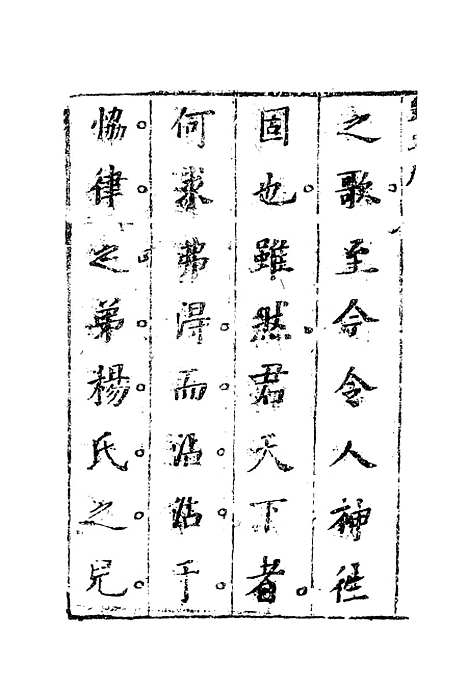 之歌至今令人神往
固也雖然君天下者
何求弗得而沾沾于
恊律之弟楊氏之兄